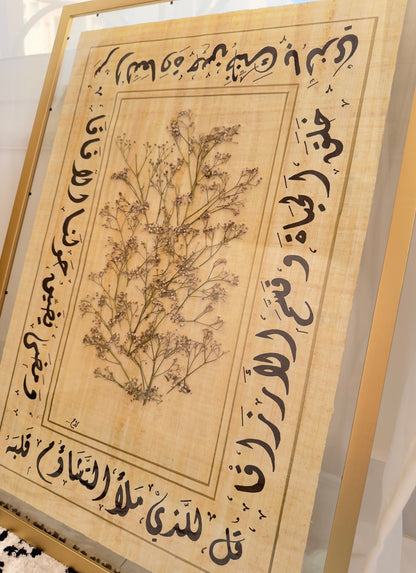 قل للذي ملأ التشاؤم قلبه
ومضى يضيق حولنا الآفاقا
سر السعادة حسن ظنك بالذي
خلق الحياة وقسم الأرزاقا